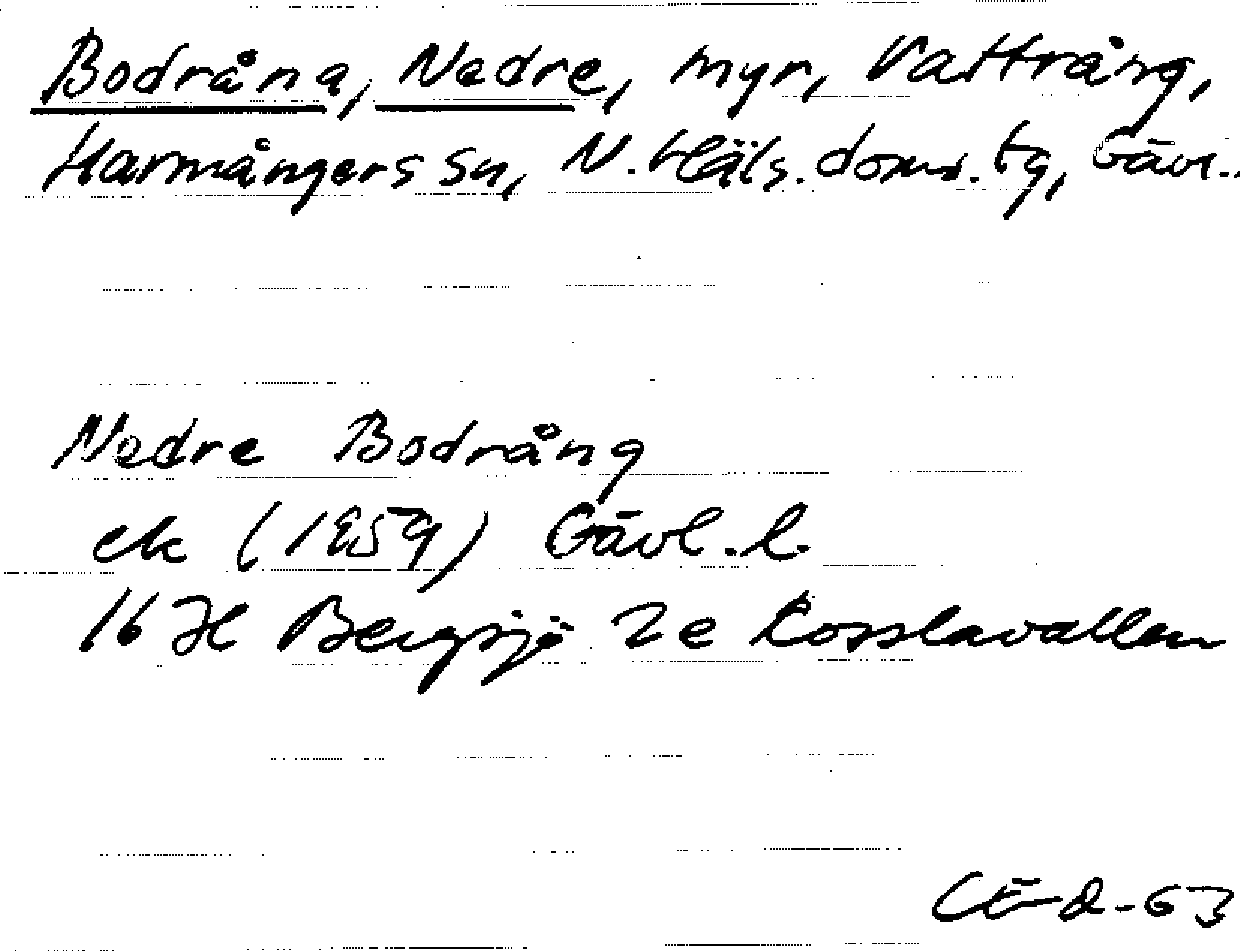 Bodråna, Nedre, myr, Vattrång,
Harmångers sn, N. Häls. doms. tg, Gävl..
Nedre Bodrång
ek (1959) Gävl. l.
16 H Bergsjö 2e Rosslavallen
CED-63